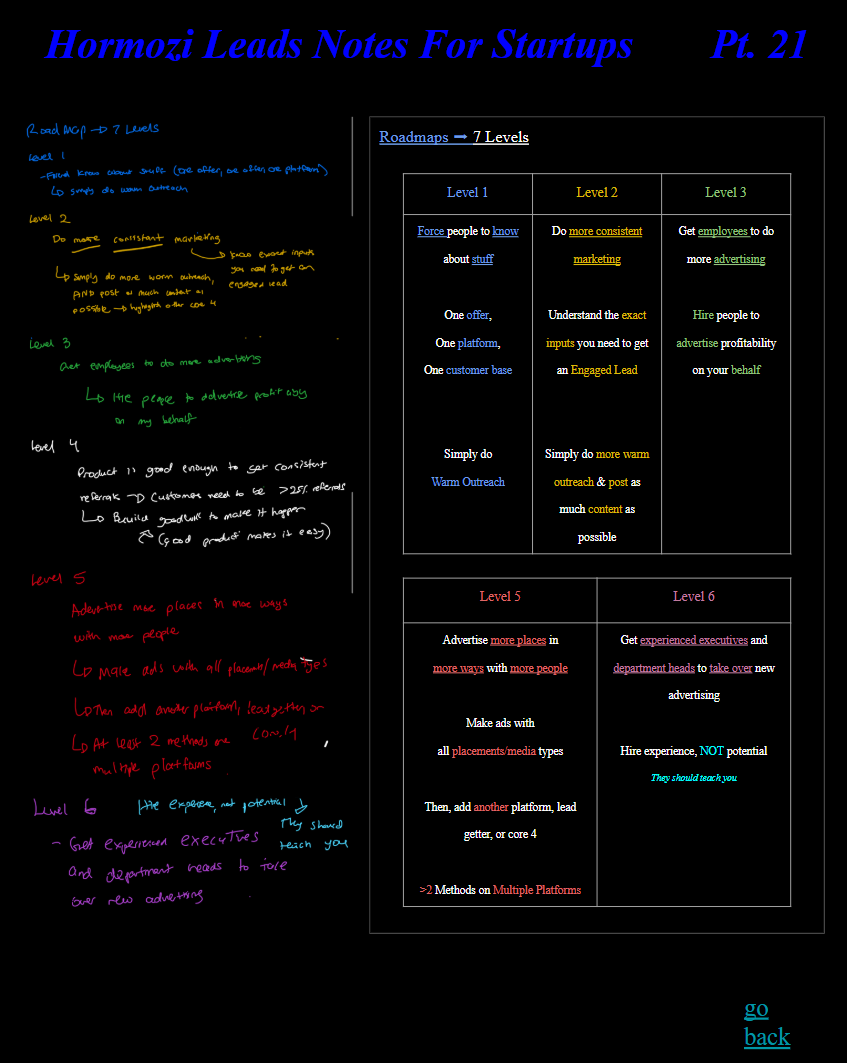 Hormozi Leads Notes For Startups Pt. 21
Road Map → 7 Levels
Level 1
simply do warm outreach
Level 2
Do more consistant marketing
know exact inputs
you need to get an
engaged lead
↳ Simply do more warm outreach,
AND post as much content as
possible → highlights other core 4
Level 3
Get employees to do more advertising
↳ Hire people to advertise profitably
on my behalf
Level 4
Product is good enough to get consistent
referrals → Customers need to be >25% referrals
↳ Build goodwill to make it happen
(good product makes it easy)
Level 5
Advertise more places in more ways
with more people
↳ Make ads with all placements/media types
↳ Then add another platform, lead getter, or
core 4
↳ At least 2 methods on
multiple platforms
Level 6
Hire experience, not potential
They should
teach you
- Get experienced executives
and department heads to take
over new advertising
Roadmaps ➞ 7 Levels
Level 1
Force people to know
about stuff
One offer,
One platform,
One customer base
Simply do
Warm Outreach
Level 2
Do more consistent
marketing
Understand the exact
inputs you need to get
an Engaged Lead
Simply do more warm
outreach & post as
much content as
possible
Level 3
Get employees to do
more advertising
Hire people to
advertise profitability
on your behalf
Level 5
Advertise more places in
more ways with more people
Make ads with
all placements/media types
Then, add another platform, lead
getter, or core 4
>2 Methods on Multiple Platforms
Level 6
Get experienced executives and
department heads to take over new
advertising
Hire experience, NOT potential
They should teach you
go
back